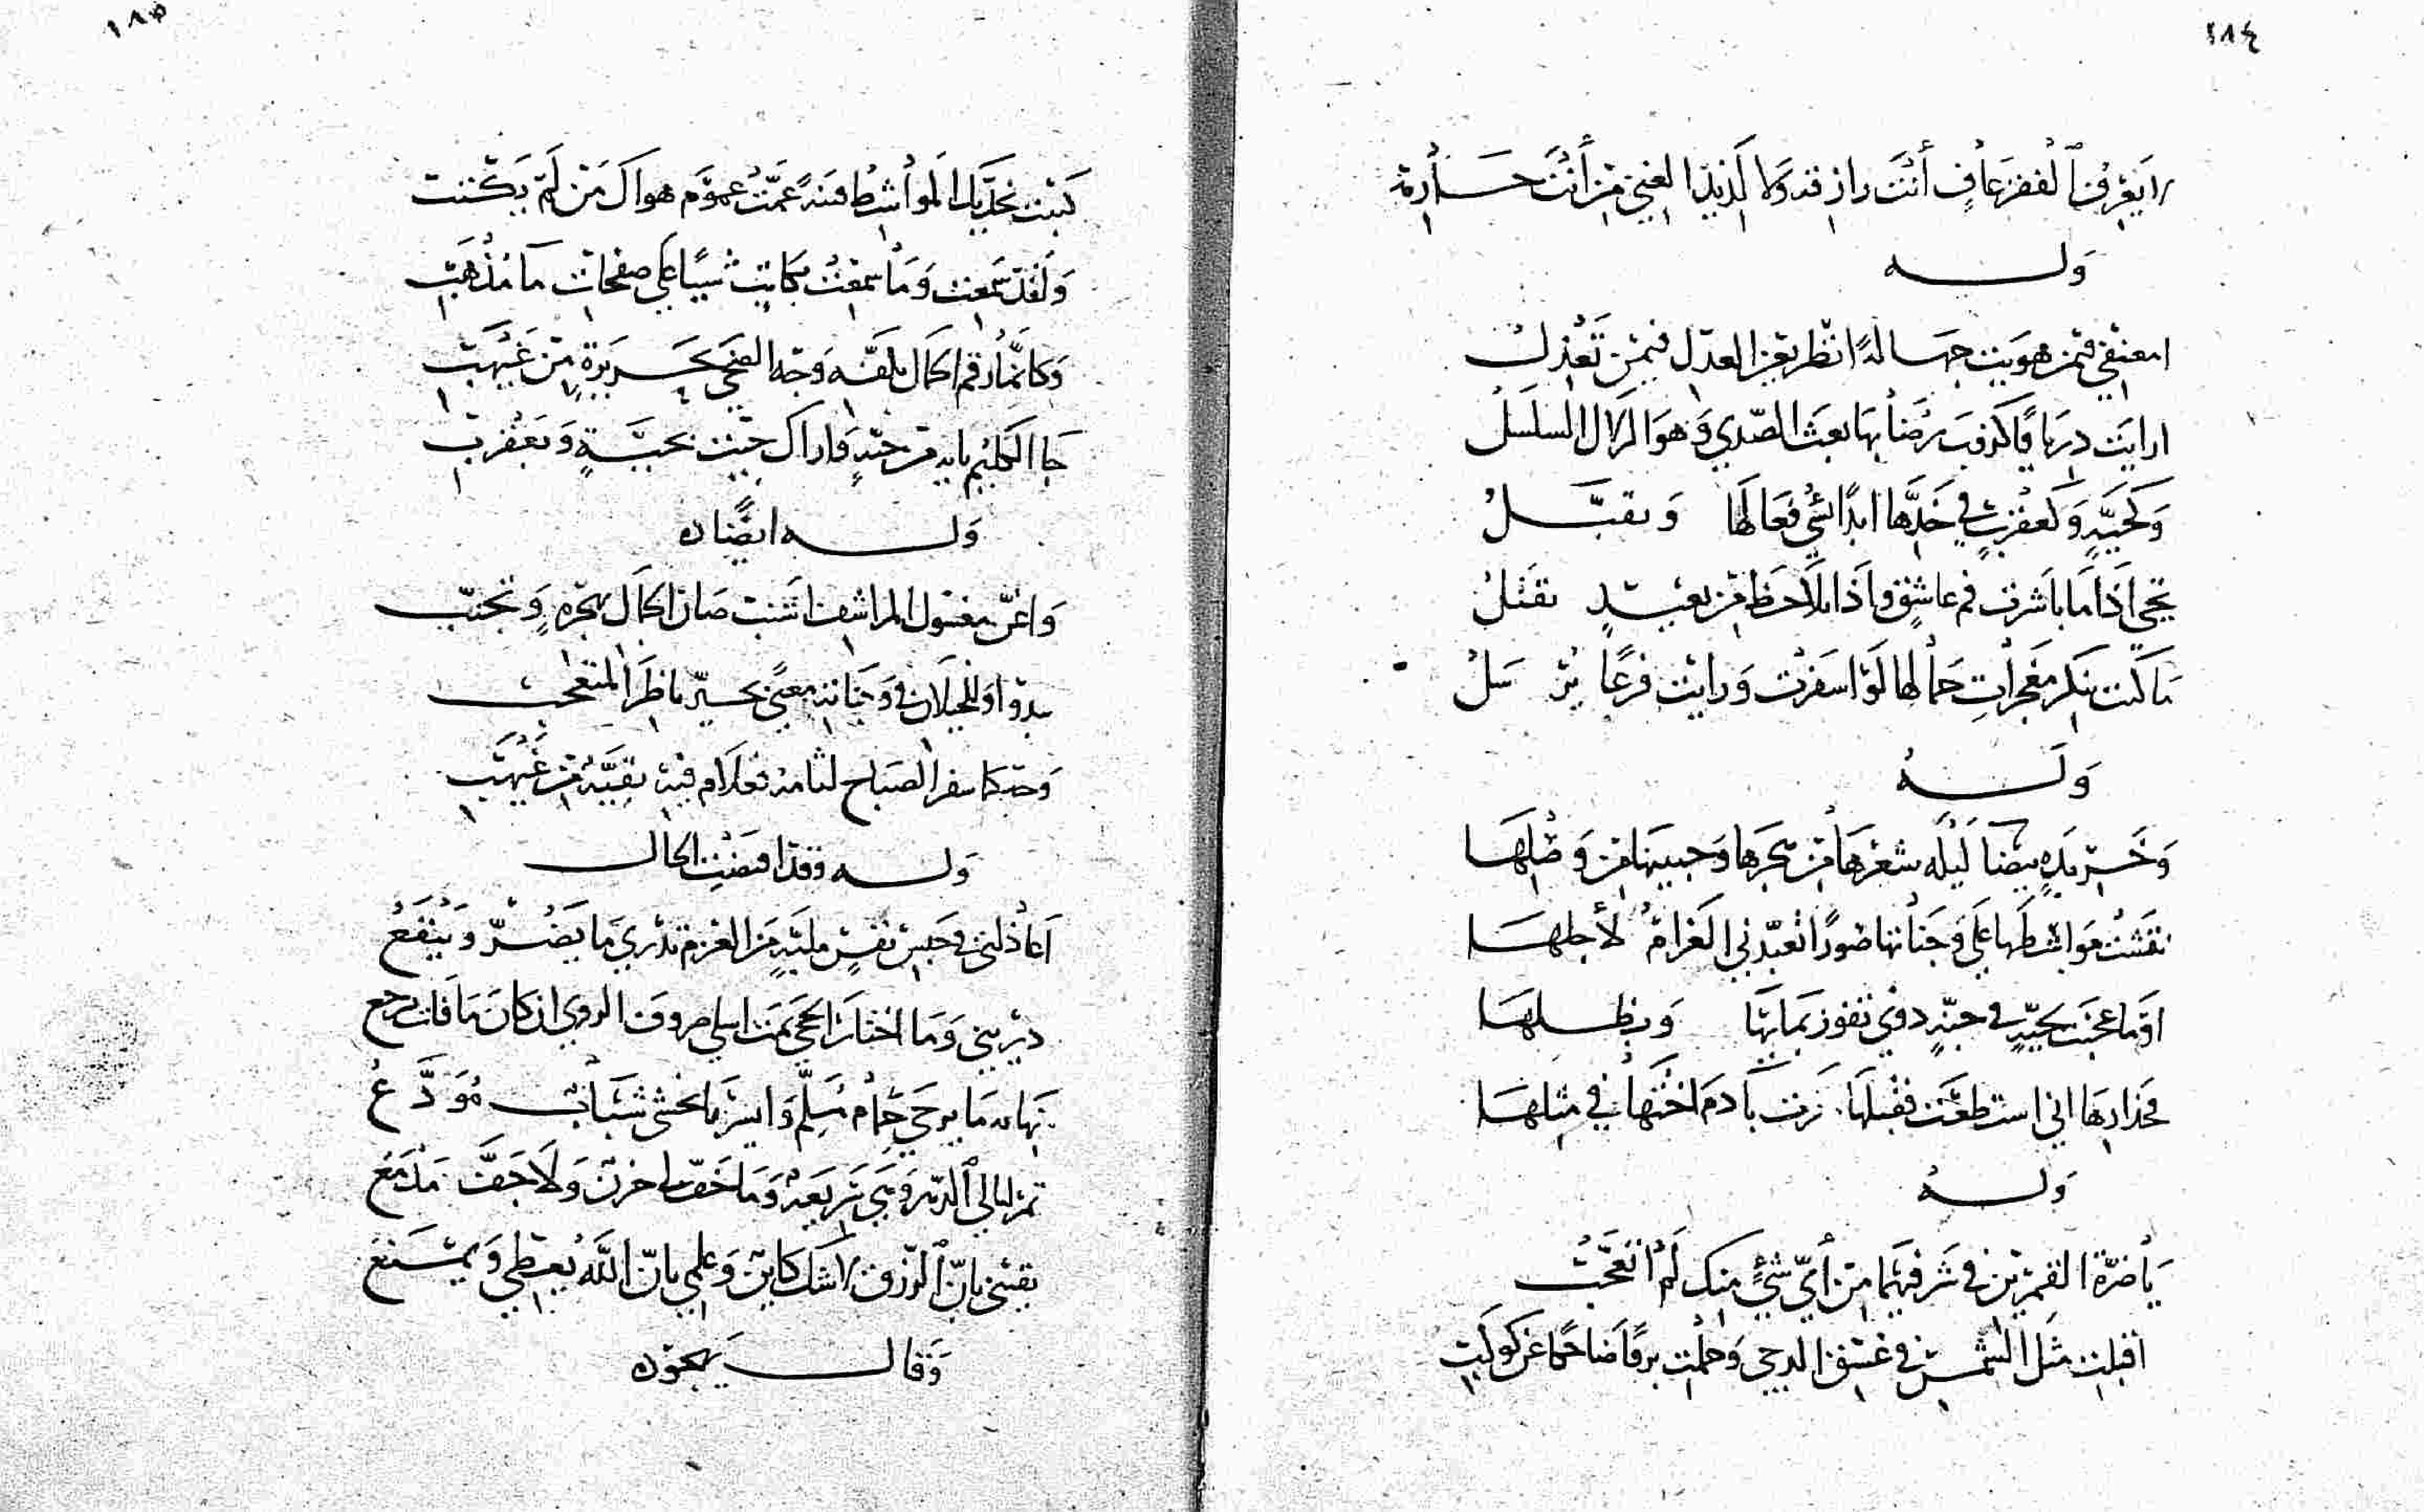 ١٨٤
لا يعرف الفقر عاف أنت رازقه ولا لذيذ الغنى من أنت حارمه
وله
امعنفي فيمن هويت جهالة انظر بعين العدل فيمن تعذل
ارايت درياقا كذوب رضابها بعث الصدي وهو الزلال السلسل
وكحية وكعقرب في خدها ابدا لشي فعالها وتقبل
تحيي اذا ما باشرت فم عاشق واذا تلاحظ من بعيد تقتل
ما كنت تنكر معجزات جمالها لو اسفرت ورايت فرعا يرسل
وله
وخريدة بيضا ليلة شعرها من هجرها وجبينها من وصلها
نقشت مواشطها على وجناتها صورا تعبدني الغرام لأجلها
اوما عجبت بحية في جنة دوني تفوز بمايها وبظلها
فحذارها اني استطعت فقبلها زلت بآدم اختها في مثلها
وله
يا ضرة القمرين في شرفيهما من أي شيء منك لم اتعجب
اقبلت مثل الشمس في غسق الدجى وحملت برقا ضاحكا عن كوكب
١٨٥
كتبت بخديك المواشط فتنة عمت عموم هواك من لم يكتب
ولقد سمعت وما سمعت بكاتب شيئا على صفحات ما مذهب
وكانما رقم الكمال بلفه وجه الضحى بحريرة من غيهب
جا الكليم باية من حية واراك جيت بحية وبعقرب
وله ايضا
واغر معسول المراشف اشنب صان الكمال بهجره وتجنب
يبدو وللخيلان في وجناته معنى يحير ناظر المتعجب
وحكا سفر الصباح لثامه فعلام فيه بقية من غيهب
وله وقد اقتضت الحال
اعاذلتي في حبس نفس ملية من العزم تدري ما يضر وينفع
ذريني وما اختار الحجى صروف الردى ان كان ما فات يرجع
نهابه ما يرجى حمام مسلم وايسر ما يخشى شباب مودع
تمر ليالي الدهر وهي سريعة وما خف لي حزن ولا جف مدمع
يقيني بان الرزق لا شك كاين وعلمي بان الله يعطي ويمنع
وقال يهجو